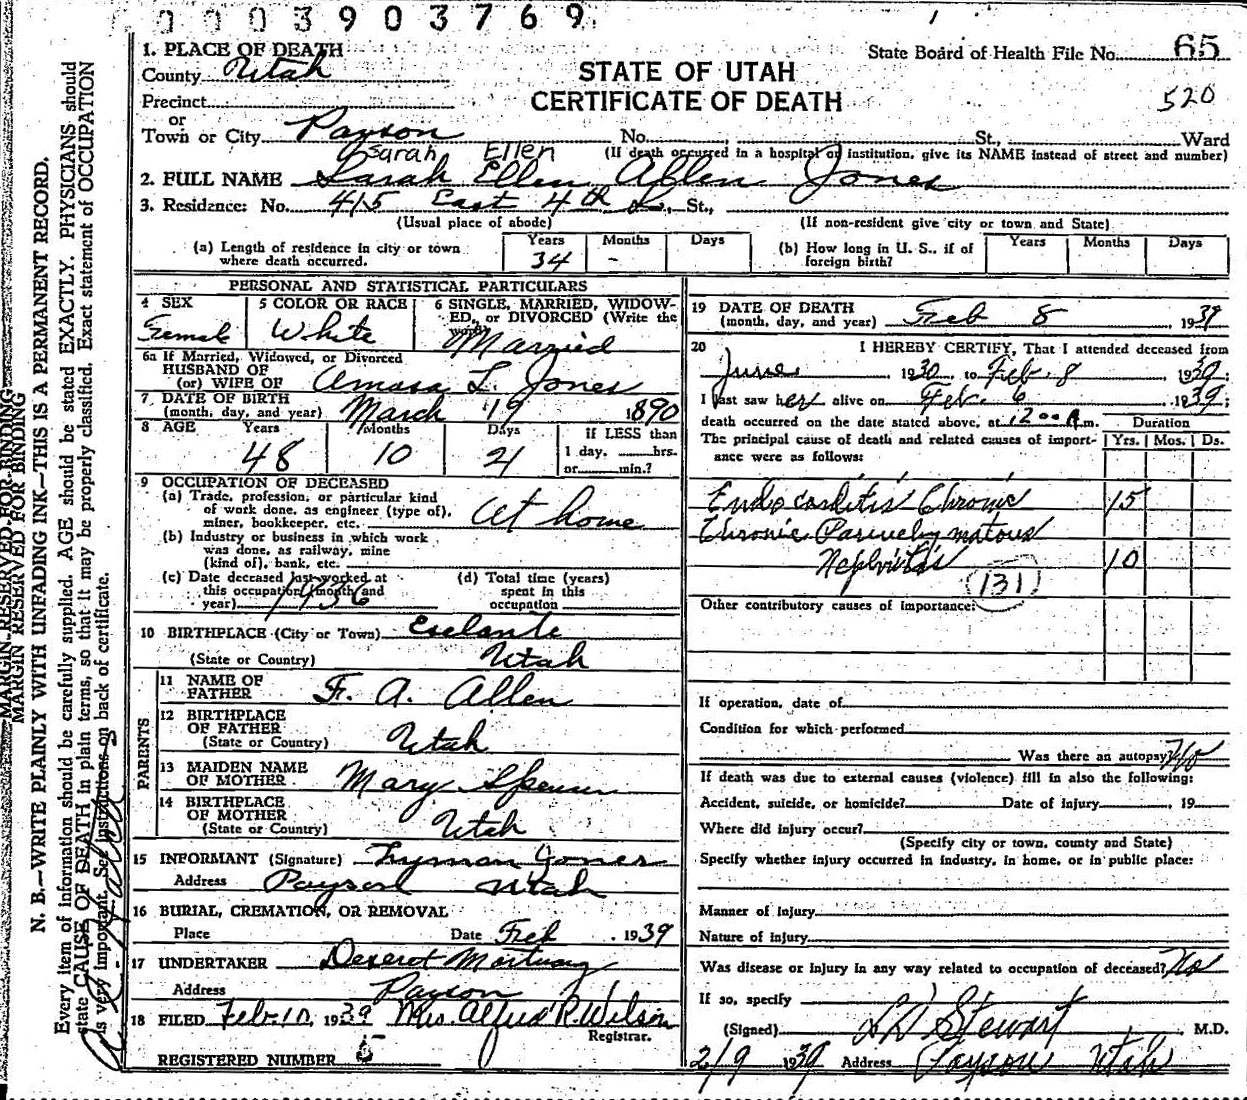 0003903769
1. PLACE OF DEATH
County Utah
State Board of Health File No. 65
STATE OF UTAH
520
Precinct
CERTIFICATE OF DEATH
or
Town or City Payson No. St., Ward
(If death occurred in a hospital or institution, give its NAME instead of street and number)
Sarah Ellen
2. FULL NAME Sarah Ellen Allen Jones
3. Residence: No. 415 East 4th St.,
(Usual place of abode) (If non-resident give city or town and State)
(a) Length of residence in city or town where death occurred. Years 34 Months - Days
(b) How long in U. S., if of foreign birth? Years Months Days
PERSONAL AND STATISTICAL PARTICULARS
4 SEX Female
5 COLOR OR RACE White
6 SINGLE, MARRIED, WIDOWED, or DIVORCED (Write the word) Married
6a If Married, Widowed, or Divorced
HUSBAND OF
(or) WIFE OF Amasa L. Jones
7 DATE OF BIRTH
(month, day, and year) March 19 1890
8 AGE Years 48 Months 10 Days 21
If LESS than
1 day, hrs.
or min.?
9 OCCUPATION OF DECEASED
(a) Trade, profession, or particular kind
of work done, as engineer (type of),
miner, bookkeeper, etc. At home
(b) Industry or business in which work
was done, as railway, mine
(kind of), bank, etc.
(c) Date deceased last worked at
this occupation (month and
year) 1936
(d) Total time (years)
spent in this
occupation
10 BIRTHPLACE (City or Town) Esclante
(State or Country) Utah
PARENTS
11 NAME OF
FATHER F. A. Allen
12 BIRTHPLACE
OF FATHER
(State or Country) Utah
13 MAIDEN NAME
OF MOTHER Mary Spencer
14 BIRTHPLACE
OF MOTHER
(State or Country) Utah
15 INFORMANT (Signature) Lyman Jones
Address Payson Utah
16 BURIAL, CREMATION, OR REMOVAL
Place Date Feb 1939
17 UNDERTAKER Deseret Mortuary
Address Payson
18 FILED Feb. 10, 1939 Mrs. Alfred R. Wilson
Registrar.
REGISTERED NUMBER 5
19 DATE OF DEATH
(month, day, and year) Feb 8, 1939
20 I HEREBY CERTIFY, That I attended deceased from
June 1930, to Feb. 8 1939;
I last saw her alive on Feb. 6 1939;
death occurred on the date stated above, at 1200 A. m.
Duration
The principal cause of death and related causes of importance were as follows: Yrs. Mos. Ds.
Endocarditis Chronic 15
Chronic Parenchymatous
Nephritis 10
(131)
Other contributory causes of importance:
If operation, date of
Condition for which performed
Was there an autopsy? No
If death was due to external causes (violence) fill in also the following:
Accident, suicide, or homicide? Date of injury , 19
Where did injury occur?
(Specify city or town, county and State)
Specify whether injury occurred in industry, in home, or in public place:
Manner of injury
Nature of injury
Was disease or injury in any way related to occupation of deceased? No
If so, specify
(Signed) L D Stewart M.D.
2/9 1939 Address Payson Utah
MARGIN RESERVED FOR BINDING
MARGIN RESERVED FOR BINDING
N. B.—WRITE PLAINLY WITH UNFADING INK—THIS IS A PERMANENT RECORD.
Every item of information should be carefully supplied. AGE should be stated EXACTLY. PHYSICIANS should
state CAUSE OF DEATH in plain terms, so that it may be properly classified. Exact statement of OCCUPATION
is very important. See instructions on back of certificate.